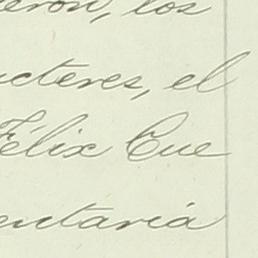 eron, los
cteres, el
Félix Cue
entaria